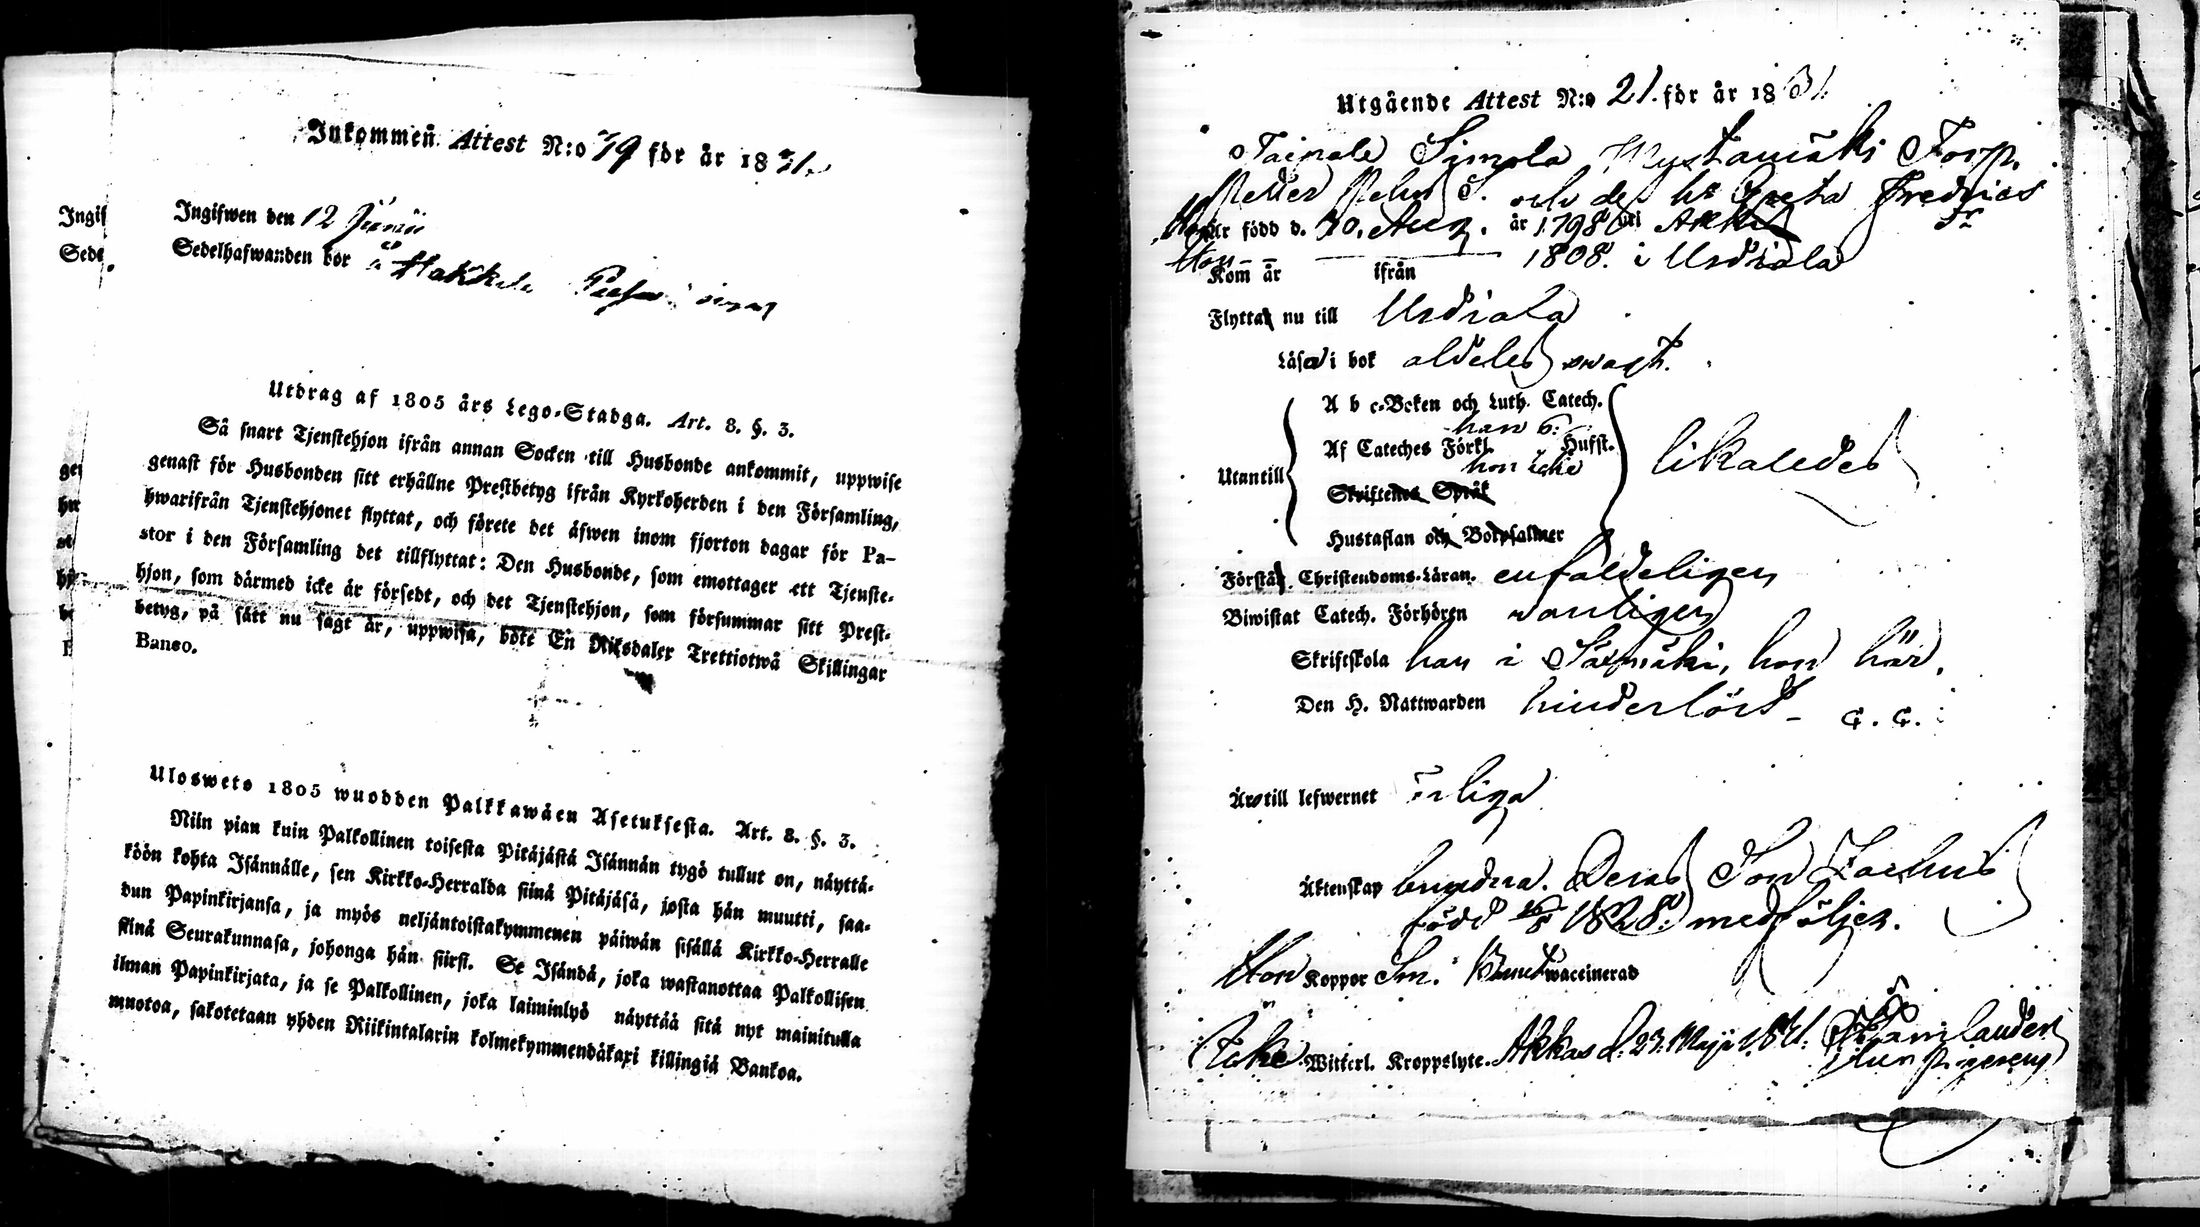 Inkommen Attest N:o 79 för år 1831.
Ingifwen den 12 Junii
Sedelhafwanden bor å Hakkila
Utdrag af 1805 års Lego-Stadga. Art. 8. §. 3.
Så snart Tjenstehjon ifrån annan Socken till Husbonde ankommit, uppwise
genast för Husbonden sitt erhållne Prestbetyg ifrån Kyrkoherden i den Församling,
hwarifrån Tjenstehjonet flyttat, och förete det äfwen inom fjorton dagar för Pa-
stor i den Församling det tillflyttat: Den Husbonde, som emottager ett Tjenste-
hjon, som därmed icke är försedt, och det Tjenstehjon, som försummar sitt Prest-
betyg, på sätt nu sagt är, uppwisa, böte En Riksdaler Trettiotwå Skillingar
Banco.
Ulosweto 1805 wuodden Palkkawäen Asetuksesta. Art. 8. §. 3.
Niin pian kuin Palkollinen toisesta Pitäjästä Isännän tygö tullut on, näyttä-
köön kohta Isännälle, sen Kirkko-Herralda siinä Pitäjäsä, josta hän muutti, saa-
dun Papinkirjansa, ja myös neljäntoistakymmenen päiwän sisällä Kirkko-Herralle
siinä Seurakunnasa, johonga hän siirsi. Se Isändä, joka wastanottaa Palkollisen
ilman Papinkirjata, ja se Palkollinen, joka laiminlyö näyttää sitä nyt mainitulla
muotoa, sakotetaan yhden Riikintalarin kolmekymmendäkaxi killingiä Bankoa.
Utgående Attest N:o 21. för år 1831.
Toinale Simola Mustamäki Torp.
Petter Pehrs S. och des h:u Greta Fredrics Dr
Han är född d. 30. Aug. år 1798 uti Akkas
Hon 1808. i Urdiala
Kom år ifrån
Flytta nu till Urdiala
Läser i bok aldeles swagt.
A b c-Boken och Luth. Catech.
han 6:
Af Cateches Förkl. Hufst.
hon icke
Utantill likaledes
Skriftenes Språk
Hustaflan och Botpsalmer
Förstår Christendoms-Läran. enfaldeligen
Biwistat Catech. Förhören wanligen
Skriftskola han i Säxmäki, hon här.
Den H. Nattwarden hinderlöst - C. C.
Äro till lefwernet ärliga
Äktenskap bundna. Deras Son Zachris
född 16/8 1828. medföljer.
Hon Koppor Sm. Barnet waccinerad
Icke Witterl. Kroppslyte. Akkas d. 23. Maji 1831.